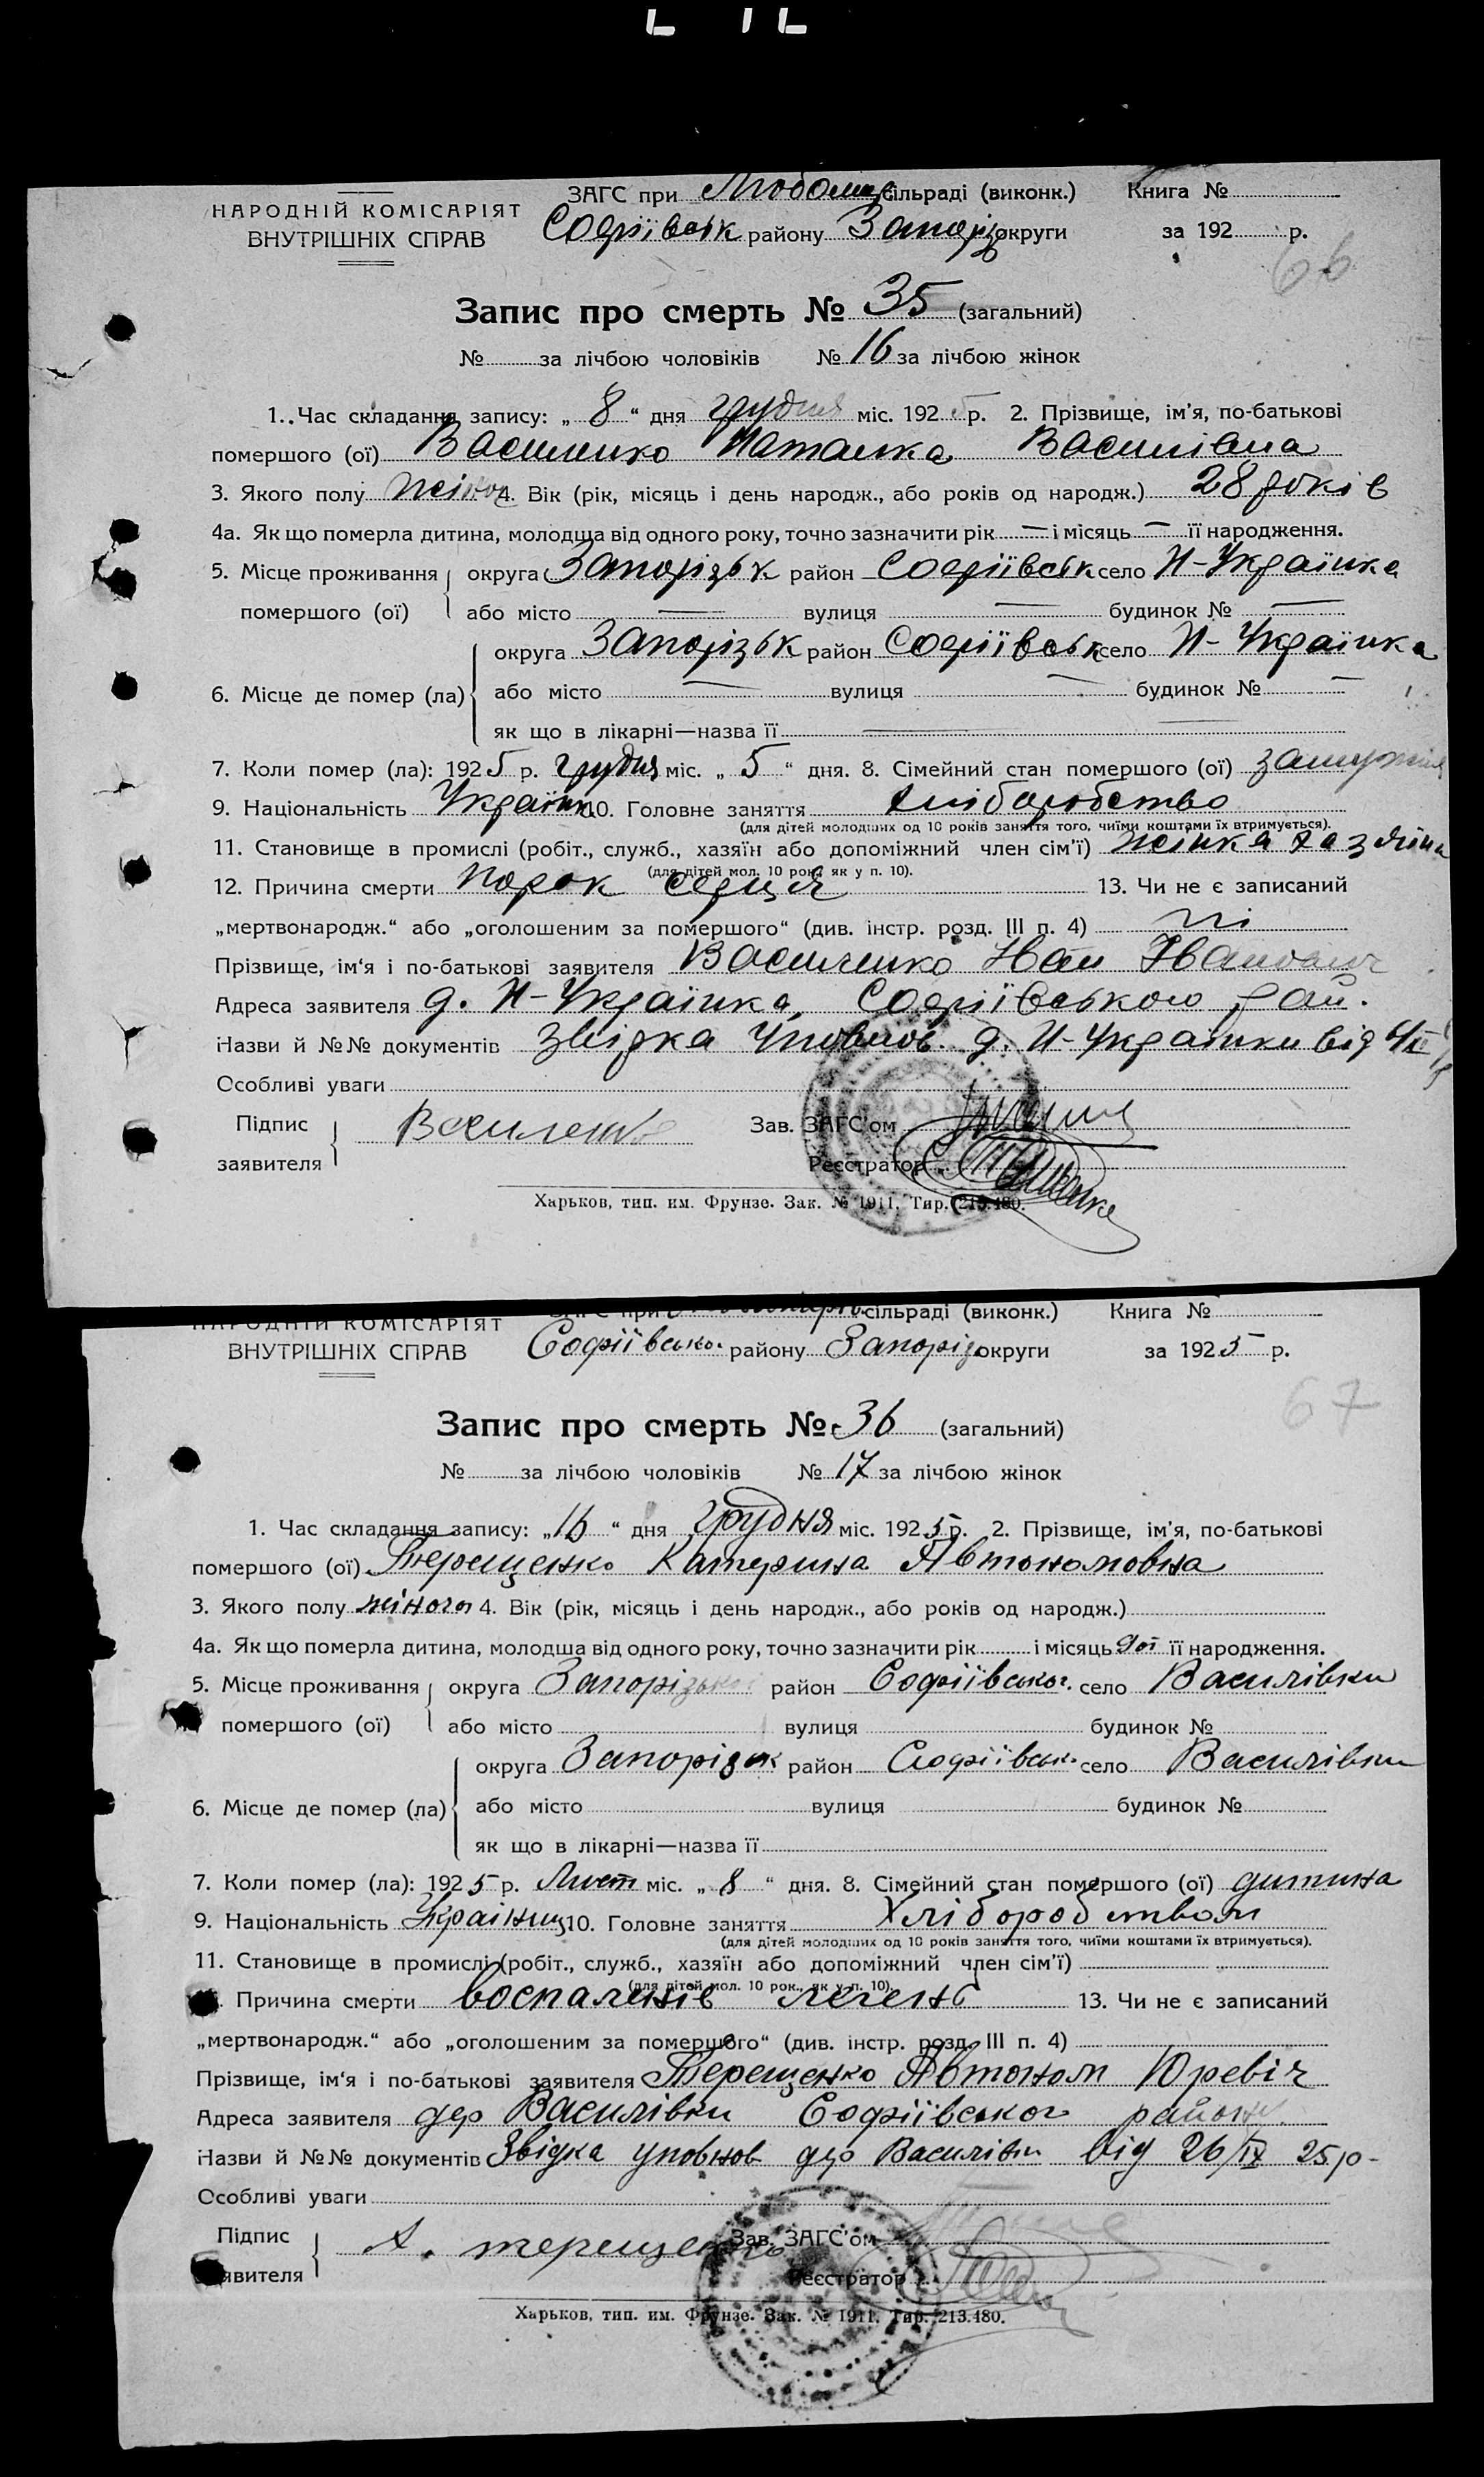 НАРОДНІЙ КОМІСАРІЯТ
ВНУТРІШНІХ СПРАВ
ЗАГС при сільраді (виконк.) Книга №
Софіївськ району Запоріз округи за 192 р.
66
Запис про смерть № 35 (загальний)
№ за лічбою чоловіків № 16 за лічбою жінок
1. Час складання запису: „ 8 “ дня грудня міс. 1925 р. 2. Прізвище, ім’я, по-батькові
помершого (ої) Василенко Наталка Василівна
3. Якого полу жіноч 4. Вік (рік, місяць і день народж., або років од народж.) 28 років
4а. Як що померла дитина, молодша від одного року, точно зазначити рік — і місяць — її народження.
5. Місце проживання округа Запорізьк район Софіївськ село Н-Українка
помершого (ої) або місто — вулиця — будинок № —
округа Запорізьк район Софіївськ село Н-Українка
6. Місце де помер (ла) або місто — вулиця — будинок № —
як що в лікарні—назва її —
7. Коли помер (ла): 1925 р. грудня міс. „ 5 “ дня. 8. Сімейний стан помершого (ої) замужня
9. Національність Українка 10. Головне заняття хліборобство
(для дітей молодших од 10 років заняття того, чиїми коштами їх втримується).
11. Становище в промислі (робіт., служб., хазяїн або допоміжний член сім’ї) жінка хазяїна
(для дітей мол. 10 рок., як у п. 10).
12. Причина смерти порок серця 13. Чи не є записаний
„мертвонародж.“ або „оголошеним за помершого“ (див. інстр. розд. III п. 4) ні
Прізвище, ім‘я і по-батькові заявителя Василенко Іван Іванович
Адреса заявителя д. Н-Українка, Софіївського рай.
Назви й №№ документів Звідка уповнов. д. Н-Українки від
Особливі уваги
Підпис заявителя Василенко Зав. ЗАГС’ом
Реєстратор
Харьков, тип. им. Фрунзе. Зак. № 1911. Тир. 213.480.
НАРОДНІЙ КОМІСАРІЯТ
ВНУТРІШНІХ СПРАВ
ЗАГС при сільраді (виконк.) Книга №
Софіївсько району Запоріз округи за 1925 р.
67
Запис про смерть № 36 (загальний)
№ за лічбою чоловіків № 17 за лічбою жінок
1. Час складання запису: „ 16 “ дня грудня міс. 1925 р. 2. Прізвище, ім’я, по-батькові
помершого (ої) Терещенко Катерина Автономовна
3. Якого полу жіного 4. Вік (рік, місяць і день народж., або років од народж.)
4а. Як що померла дитина, молодша від одного року, точно зазначити рік і місяць її народження.
5. Місце проживання округа Запорізько район Софіївсько. село Василівки
помершого (ої) або місто вулиця будинок №
округа Запорізьк район Софіївськ. село Василівки
6. Місце де помер (ла) або місто вулиця будинок №
як що в лікарні—назва її
7. Коли помер (ла): 1925 р. Лист міс. „ 8 “ дня. 8. Сімейний стан помершого (ої) дитина
9. Національність Українц 10. Головне заняття Хліборобством
(для дітей молодших од 10 років заняття того, чиїми коштами їх втримується).
11. Становище в промислі (робіт., служб., хазяїн або допоміжний член сім’ї)
(для дітей мол. 10 рок., як у п. 10).
Причина смерти воспаленів легенб 13. Чи не є записаний
„мертвонародж.“ або „оголошеним за помершого“ (див. інстр. розд. III п. 4)
Прізвище, ім‘я і по-батькові заявителя Терещенко Автоном Юревіч
Адреса заявителя дер Василівки Софіївського району
Назви й №№ документів Звідка уповнов дер Василівки від 26/IX 25 р-
Особливі уваги
Підпис заявителя А. терещенко Зав. ЗАГС’ом
Реєстратор
Харьков, тип. им. Фрунзе. Зак. № 1911. Тир. 213.480.